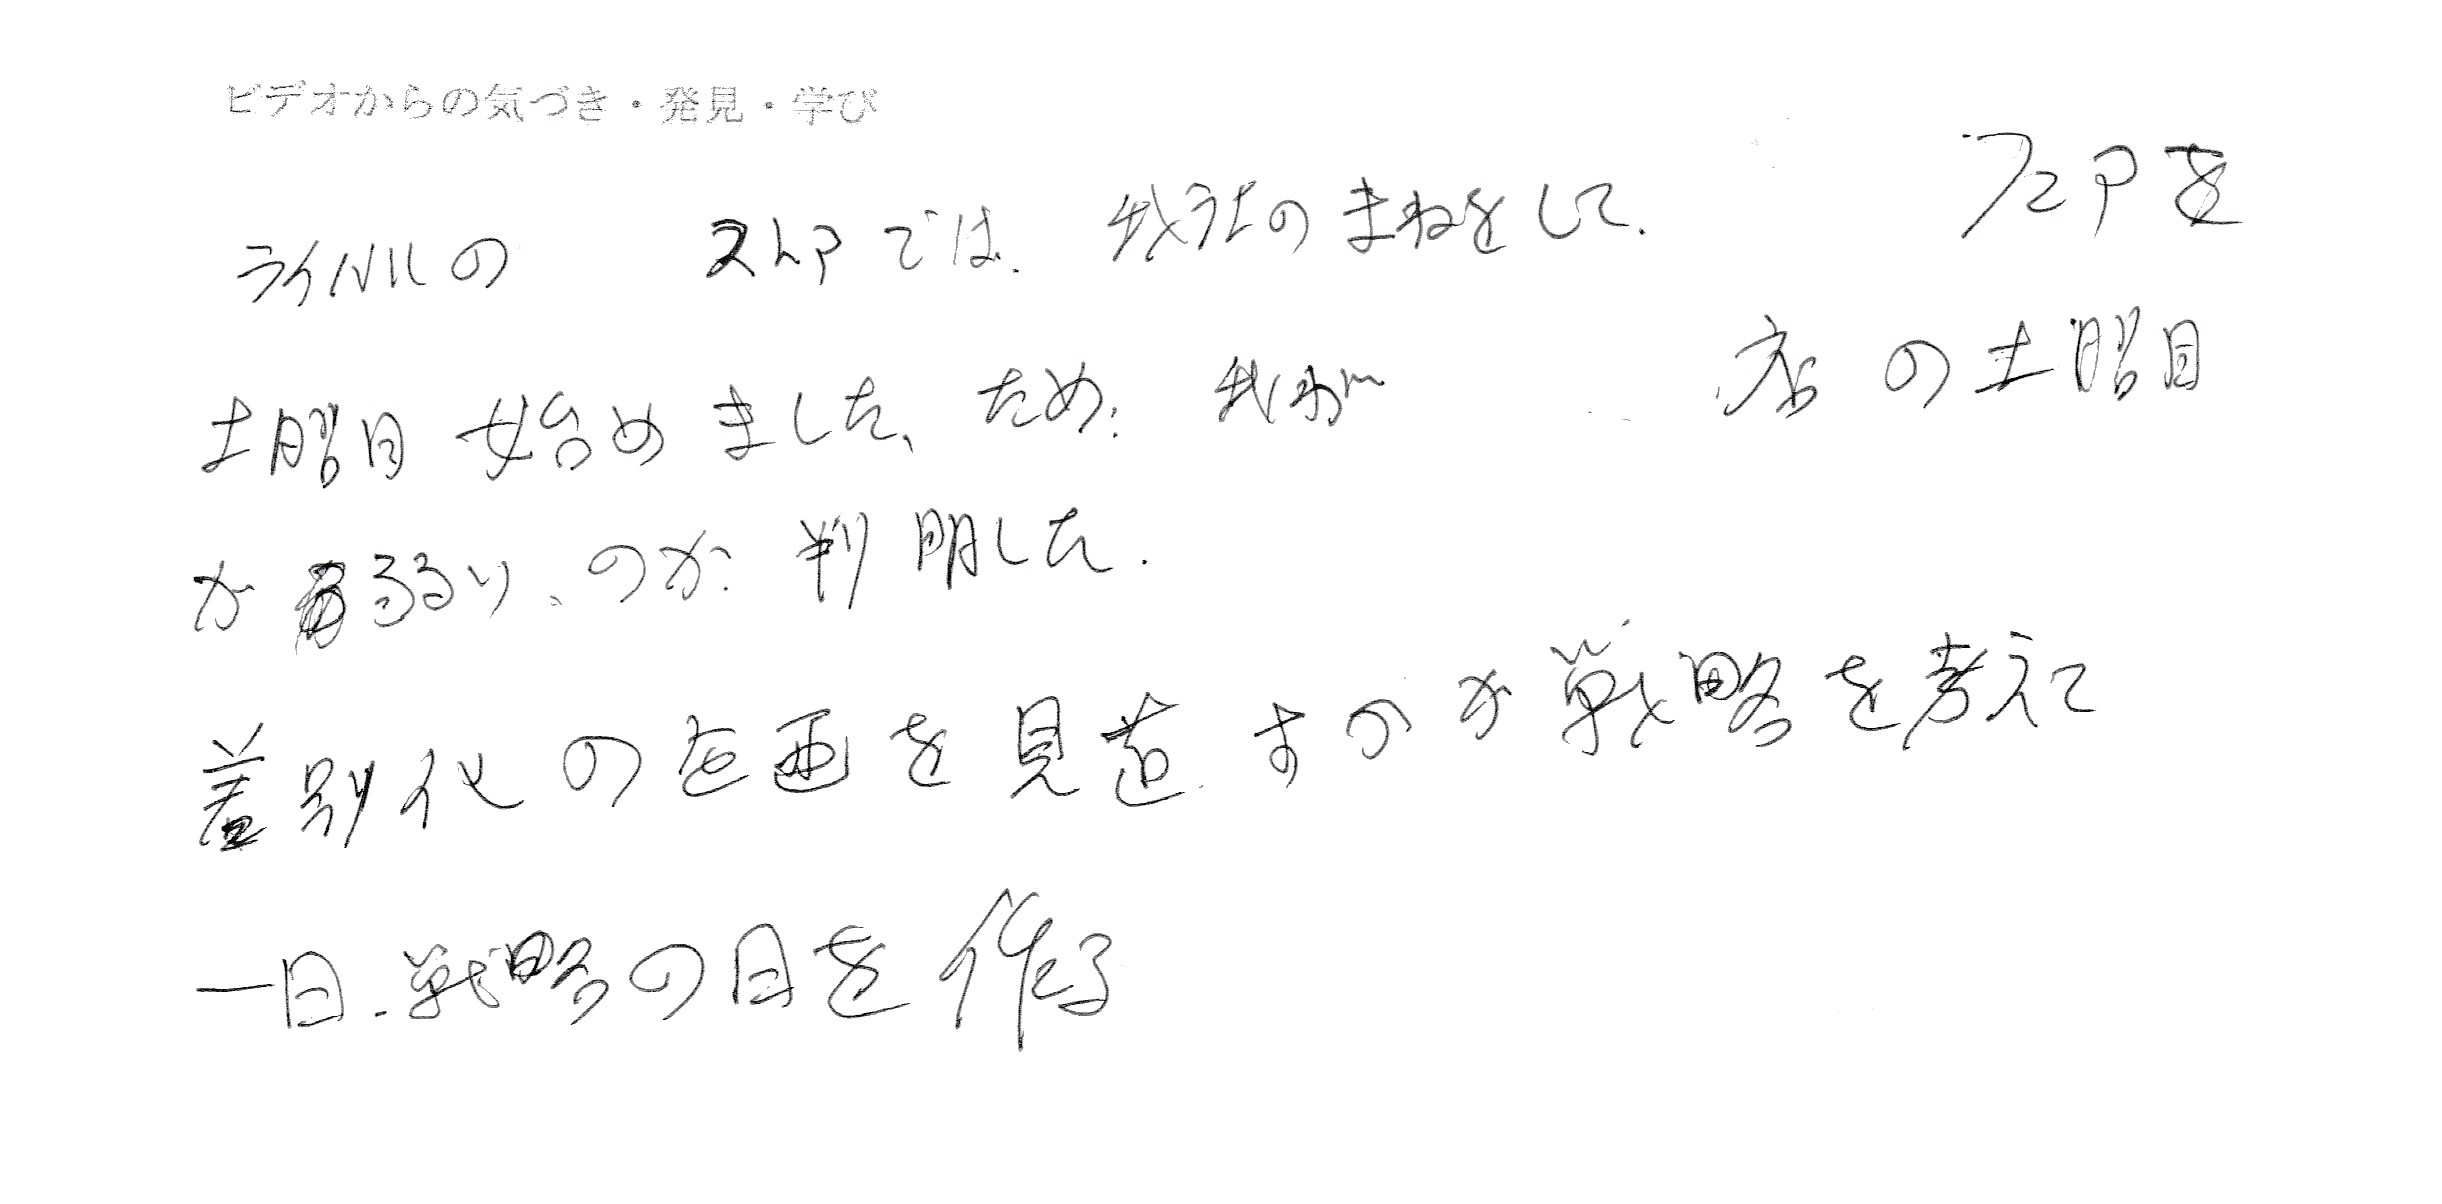 ビデオからの気づき・発見・学び
ライバルの ストアでは、我社のまねをして、 フェアを
土曜日 始めました、ため、我が 店の土曜日
が るい、のが 判明した.
差別化の 画を見 すのか戦略を考えて
一日、戦略の日を作る